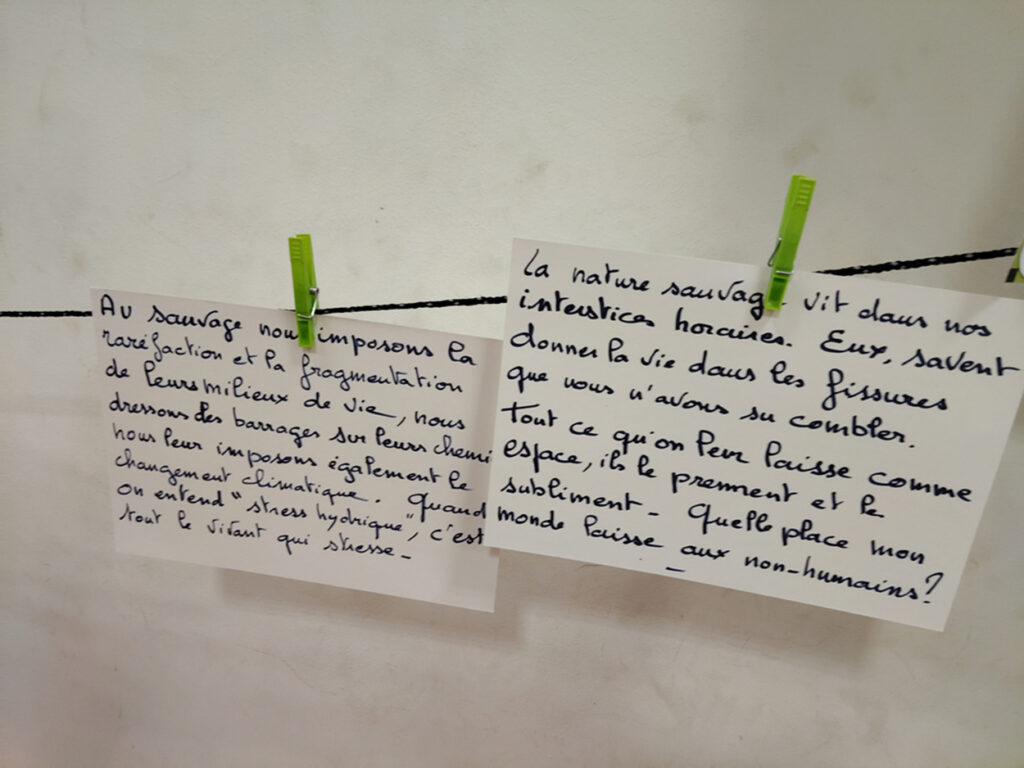 Au sauvage nous imposons la
raréfaction et la fragmentation
de leurs milieux de vie, nous
dressons des barrages sur leurs chemi
nous leur imposons également le
changement climatique. Quand
on entend "stress hydrique", c'est
tout le vivant qui stresse_
La nature sauvag vit dans nos
interstices horaires. Eux, savent
donner la vie dans les fissures
que nous n'avons su combler.
Tout ce qu'on leur laisse comme
espace, ils le prennent et le
subliment_ Quelle place mon
monde laisse aux non-humains?